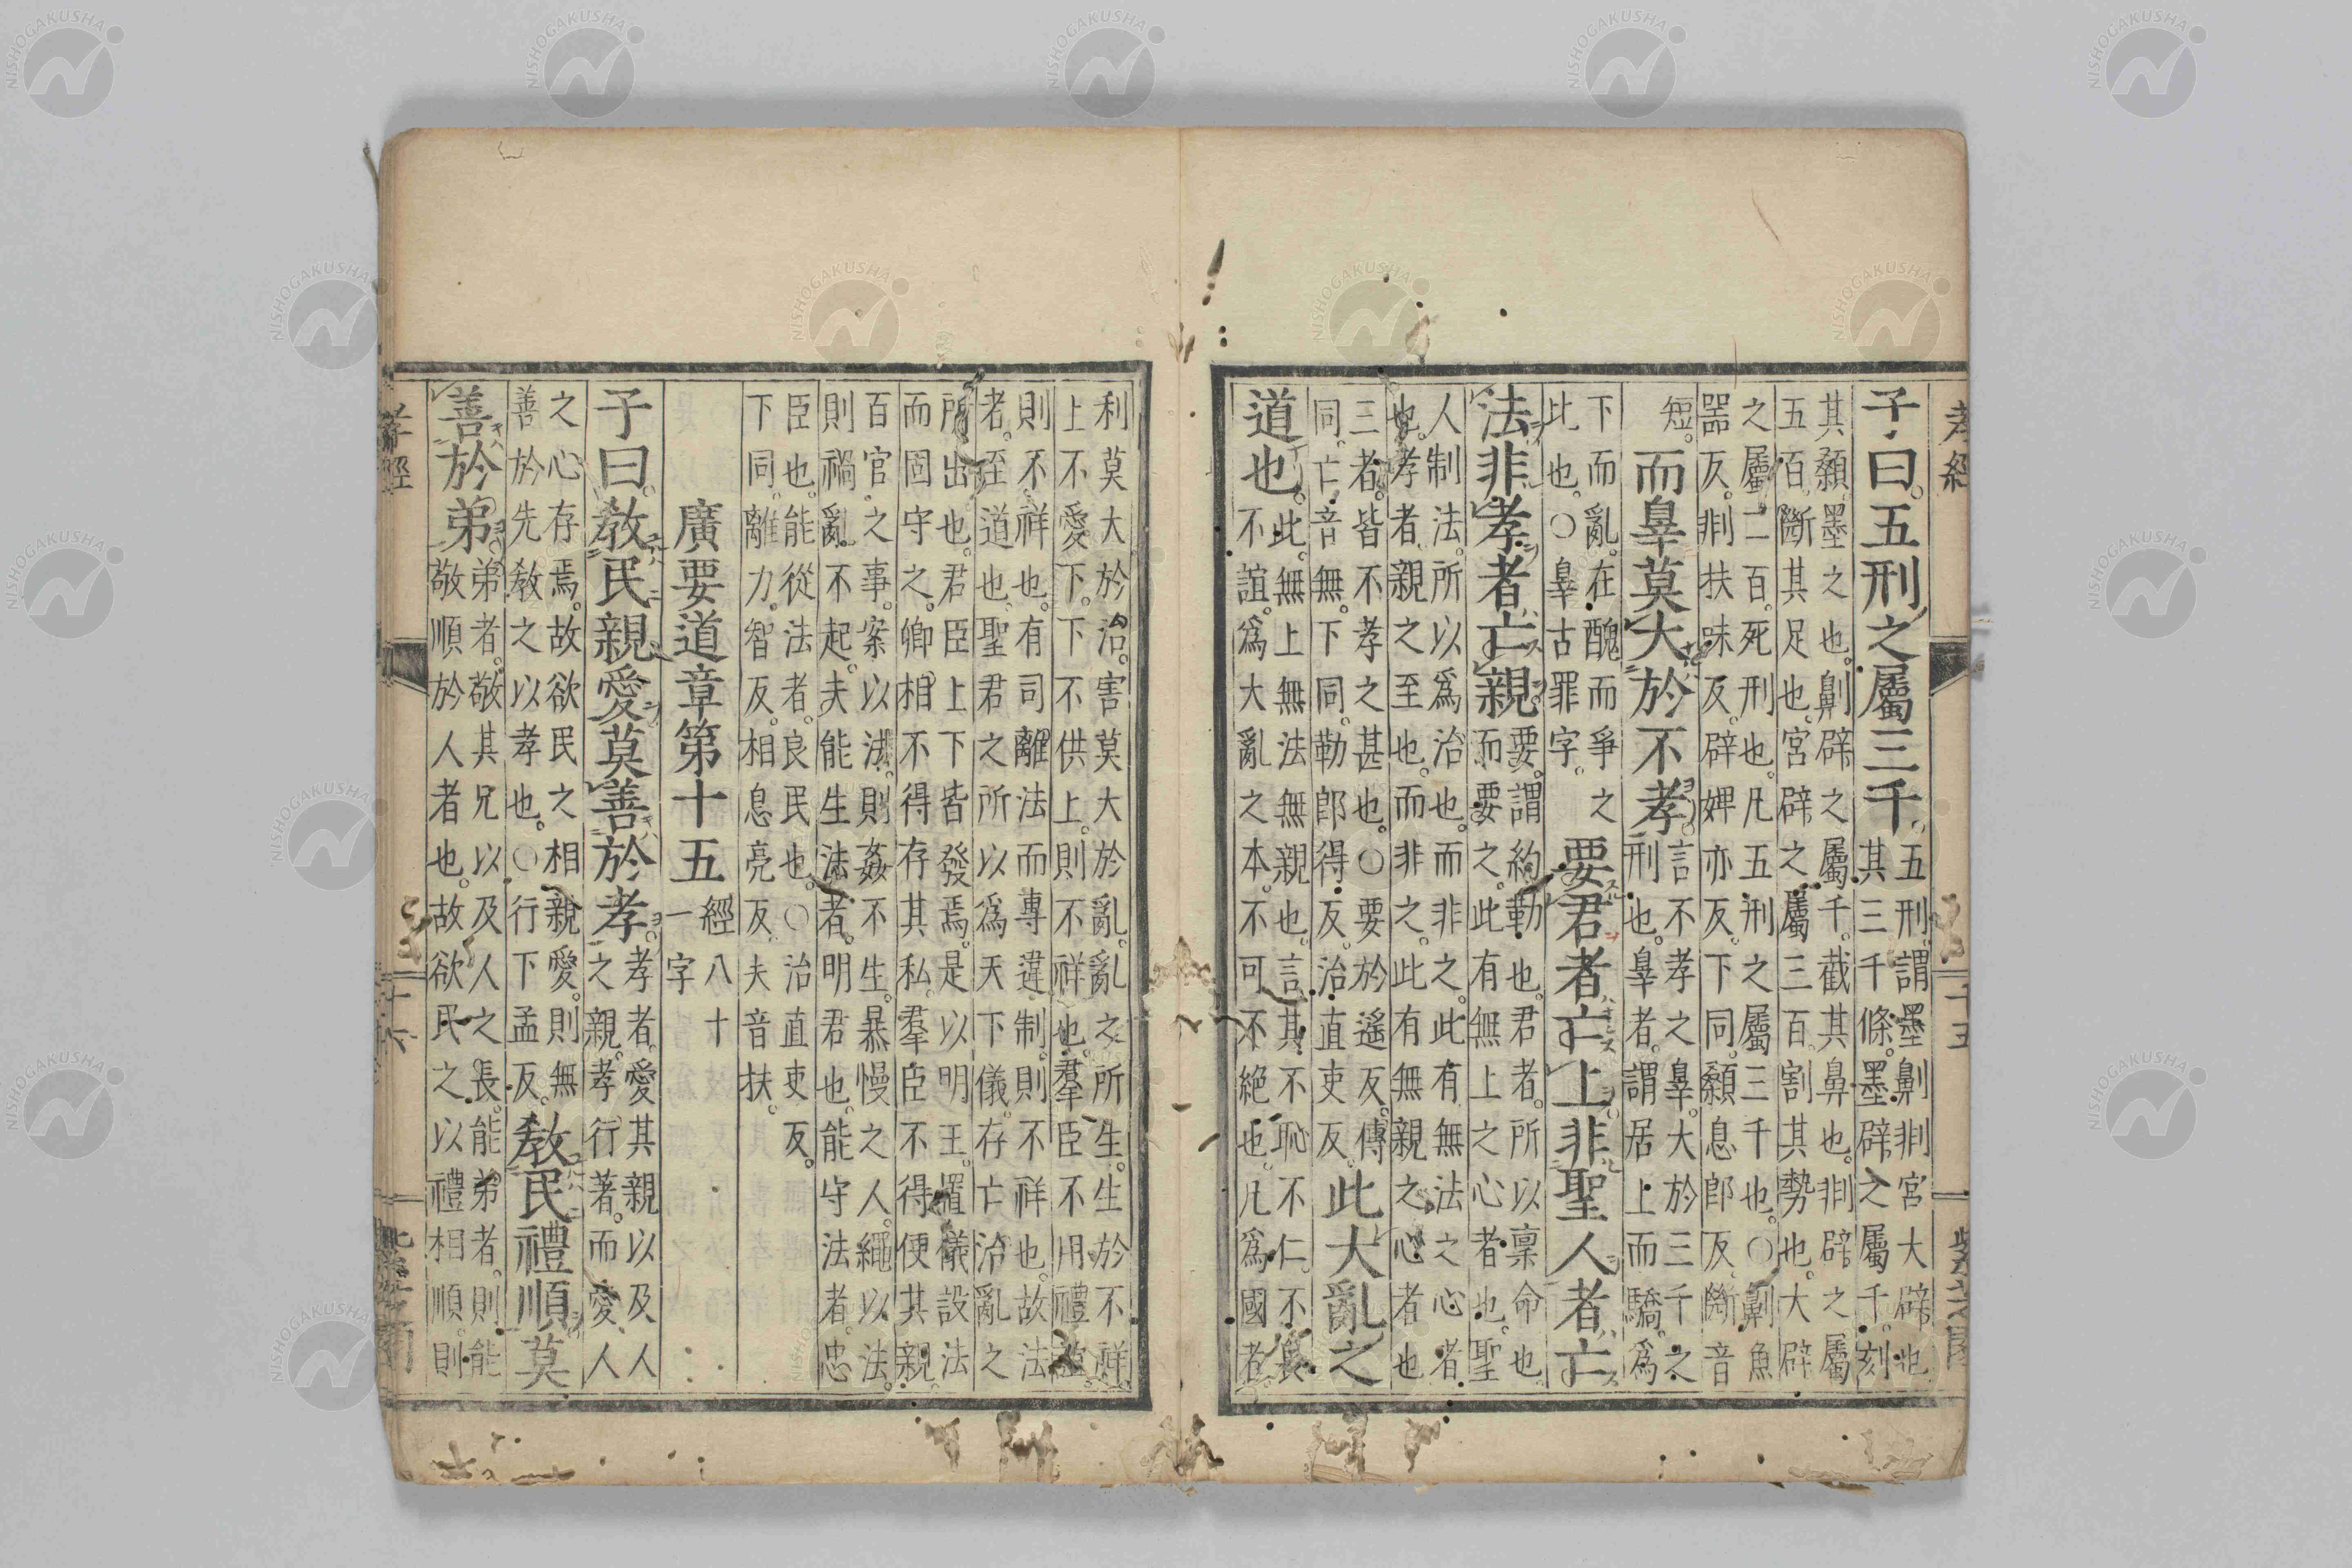 孝經
十五
子曰。五刑之屬三千。
五刑。謂墨劓剕宮大辟也
其三千條。墨辟之屬千。刻
其顙墨之也。劓辟之屬千。截其鼻也。剕辟之屬
五百。斷其足也。宮辟之屬三百。割其勢也。大辟
之屬二百。死刑也。凡五刑之屬三千也。○劓魚
器反。剕扶味反。辟婢亦反。下同。顙息郎反。斷音
短。
而辠莫大於不孝。
言不孝之辠。大於三千之
刑也。辠者。謂居上而驕。爲
下而亂。在醜而爭之
此也。○辠古罪字。
要君者亡上。非聖人者亡
法。非孝者亡親。
要。謂約勒也。君者。所以稟命也。
而要之。此有無上之心者也。聖
人制法。所以爲治也。而非之。此有無法之心者
也。孝者。親之至也。而非之。此有無親之心者也
三者。皆不孝之甚也。○要於遙反。傳
同。亡音無。下同。勒郎得反。治直吏反。
此大亂之
道也。
此。無上無法無親也。言其不恥不仁。不畏
不誼。爲大亂之本。不可不絕也。凡爲國者。
利莫大於治。害莫大於亂。亂之所生。生於不祥。
上不愛下。下不供上。則不祥也。羣臣不用禮誼。
則不祥也。有司離法而專違制。則不祥也。故法
者。至道也。聖君之所以爲天下儀。存亡治亂之
所出也。君臣上下皆發焉。是以明王。置儀設法
而固守之。卿相不得存其私。羣臣不得便其親。
百官之事。案以法。則姦不生。暴慢之人。繩以法。
則禍亂不起。夫能生法者。明君也。能守法者。忠
臣也。能從法者。良民也。○治直吏反。
下同。離力智反。相息亮反。夫音扶。
廣要道章第十五
經八十
一字
子曰。教民親愛。莫善於孝。
孝者。愛其親以及人
之親。孝行著。而愛人
之心存焉。故欲民之相親愛。則無
善於先教之以孝也。○行下孟反。
教民禮順。莫
善於弟。
弟者。敬其兄以及人之長。能弟者。則能
敬順於人者也。故欲民之以禮相順。則
孝經
十六